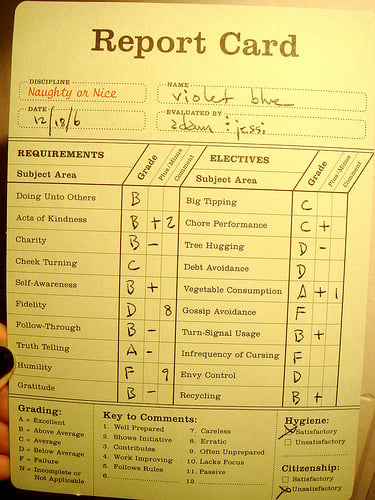 Report Card
DISCIPLINE
Naughty or Nice
NAME
violet blue
DATE
12/18/6
EVALUATED BY
adam : jessi
REQUIREMENTS Grade Plus/Minus Comment
Subject Area
Doing Unto Others B
Acts of Kindness B + 2
Charity B -
Cheek Turning C
Self-Awareness B +
Fidelity D 8
Follow-Through B -
Truth Telling A -
Humility F 9
Gratitude B -
ELECTIVES Grade Plus/Minus Comment
Subject Area
Big Tipping C
Chore Performance C +
Tree Hugging D -
Debt Avoidance D
Vegetable Consumption A + 1
Gossip Avoidance F
Turn-Signal Usage B +
Infrequency of Cursing F
Envy Control D
Recycling B +
Grading:
A = Excellent
B = Above Average
C = Average
D = Below Average
F = Failure
N = Incomplete or
Not Applicable
Key to Comments:
1. Well Prepared
2. Shows Initiative
3. Contributes
4. Work Improving
5. Follows Rules
6.
7. Careless
8. Erratic
9. Often Unprepared
10. Lacks Focus
11. Passive
12.
Hygiene:
Satisfactory
Unsatisfactory
Citizenship:
Satisfactory
Unsatisfactory